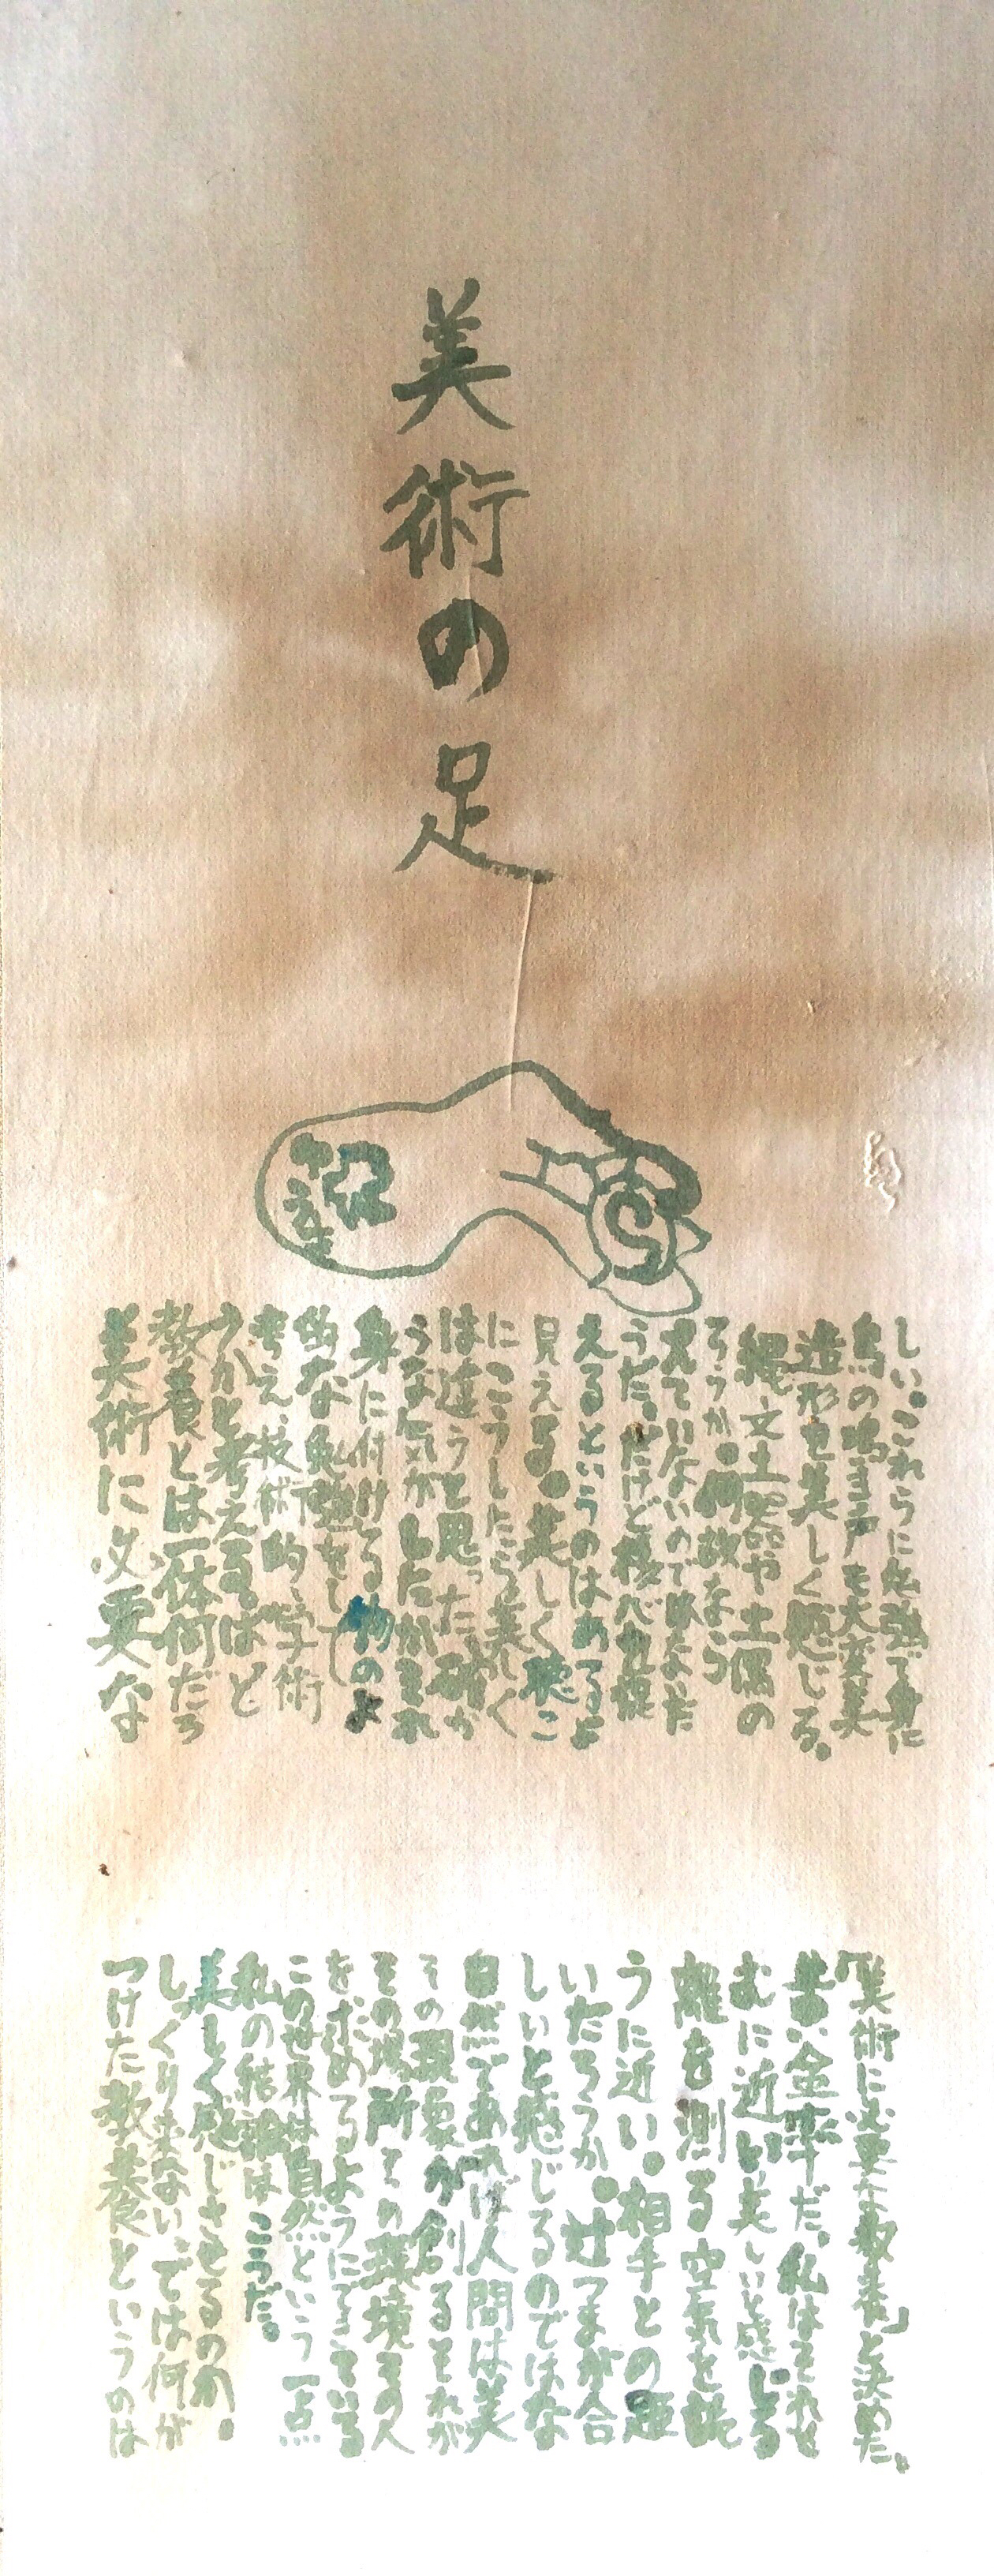 美術の足
美術に必要な
教養とは一体何だろ
うかと考えるほど
考え、技術的、学術
的な勉強をして
身に付ける物のよ
うな気がしたがそれ
は違うと思った。確か
にこうしたら美しく
見える。美しく聴こ
えるというのはあるよ
うだ。だけど核心を捉
えていないのではないだ
ろうか。何故なら
縄文土器や土偶の
造形も美しく感じる。
鳥の鳴き声も大変美
しい。これらに勉強で身に
つけた教養というのは
しっくり来ない。では何が
美しく感じさせるのか。
私の結論はこうだ。
この世界は自然という一点
を求めるようにできている
その場所その環境その人
その現象が創るそれが
自然であれば人間は美
しいと感じるのではな
いだろうか。辻つまが合
うに近い。相手との距
離を測る空気を読
むに近い美しいと感じる
黄金率だ。私はそれを
「美術に必要な教養」と決めた。